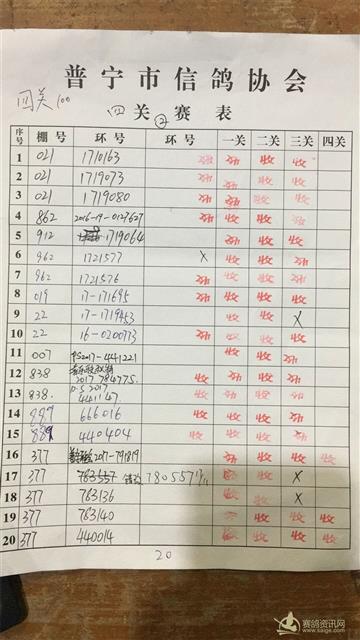 普宁市信鸽协会
闯关100
四关②赛表
序号 棚号 环号 环号 一关 二关 三关 四关
1 021 1710163 收
2 021 1719073 收
3 021 1719080 收
4 862 2016-19-0127627 收 收
5 912 1719064 收 收
6 962 1721577 X 收
7 962 1721576 收
8 019 17-171695 收
9 22 17-1719453 收 X
10 22 16-0200773 收
11 007 PS2017-441221 收 收
12 838 2017 784775 收
13 838. 0.5 2017 441147 收 收
14 889 666016 收
15 889 440404 收 收 收
16 377 2017-791819 收 收
17 377 763557 7805571 收 X
18 377 763136 收 X
19 377 763140 收 收 收
20 377 440014 收 收 收
20
赛鸽资讯网
www.saige.com